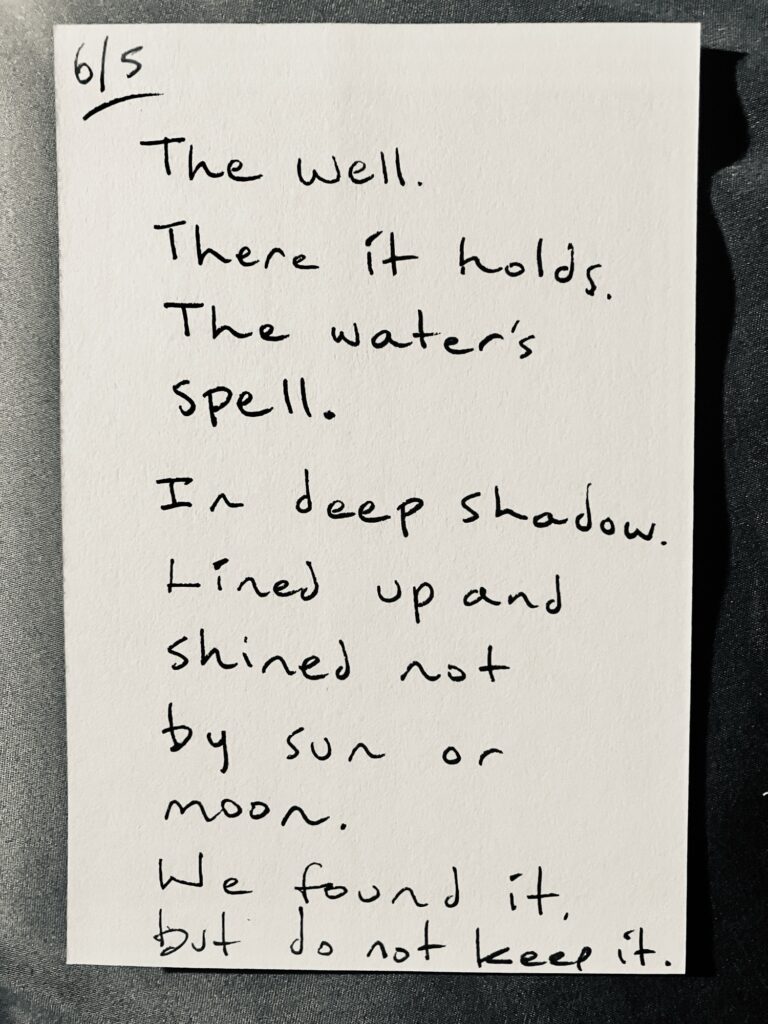 6/5
The well.
There it holds.
The water's
spell.
In deep shadow.
Lined up and
shined not
by sun or
moon.
We found it,
but do not keep it.